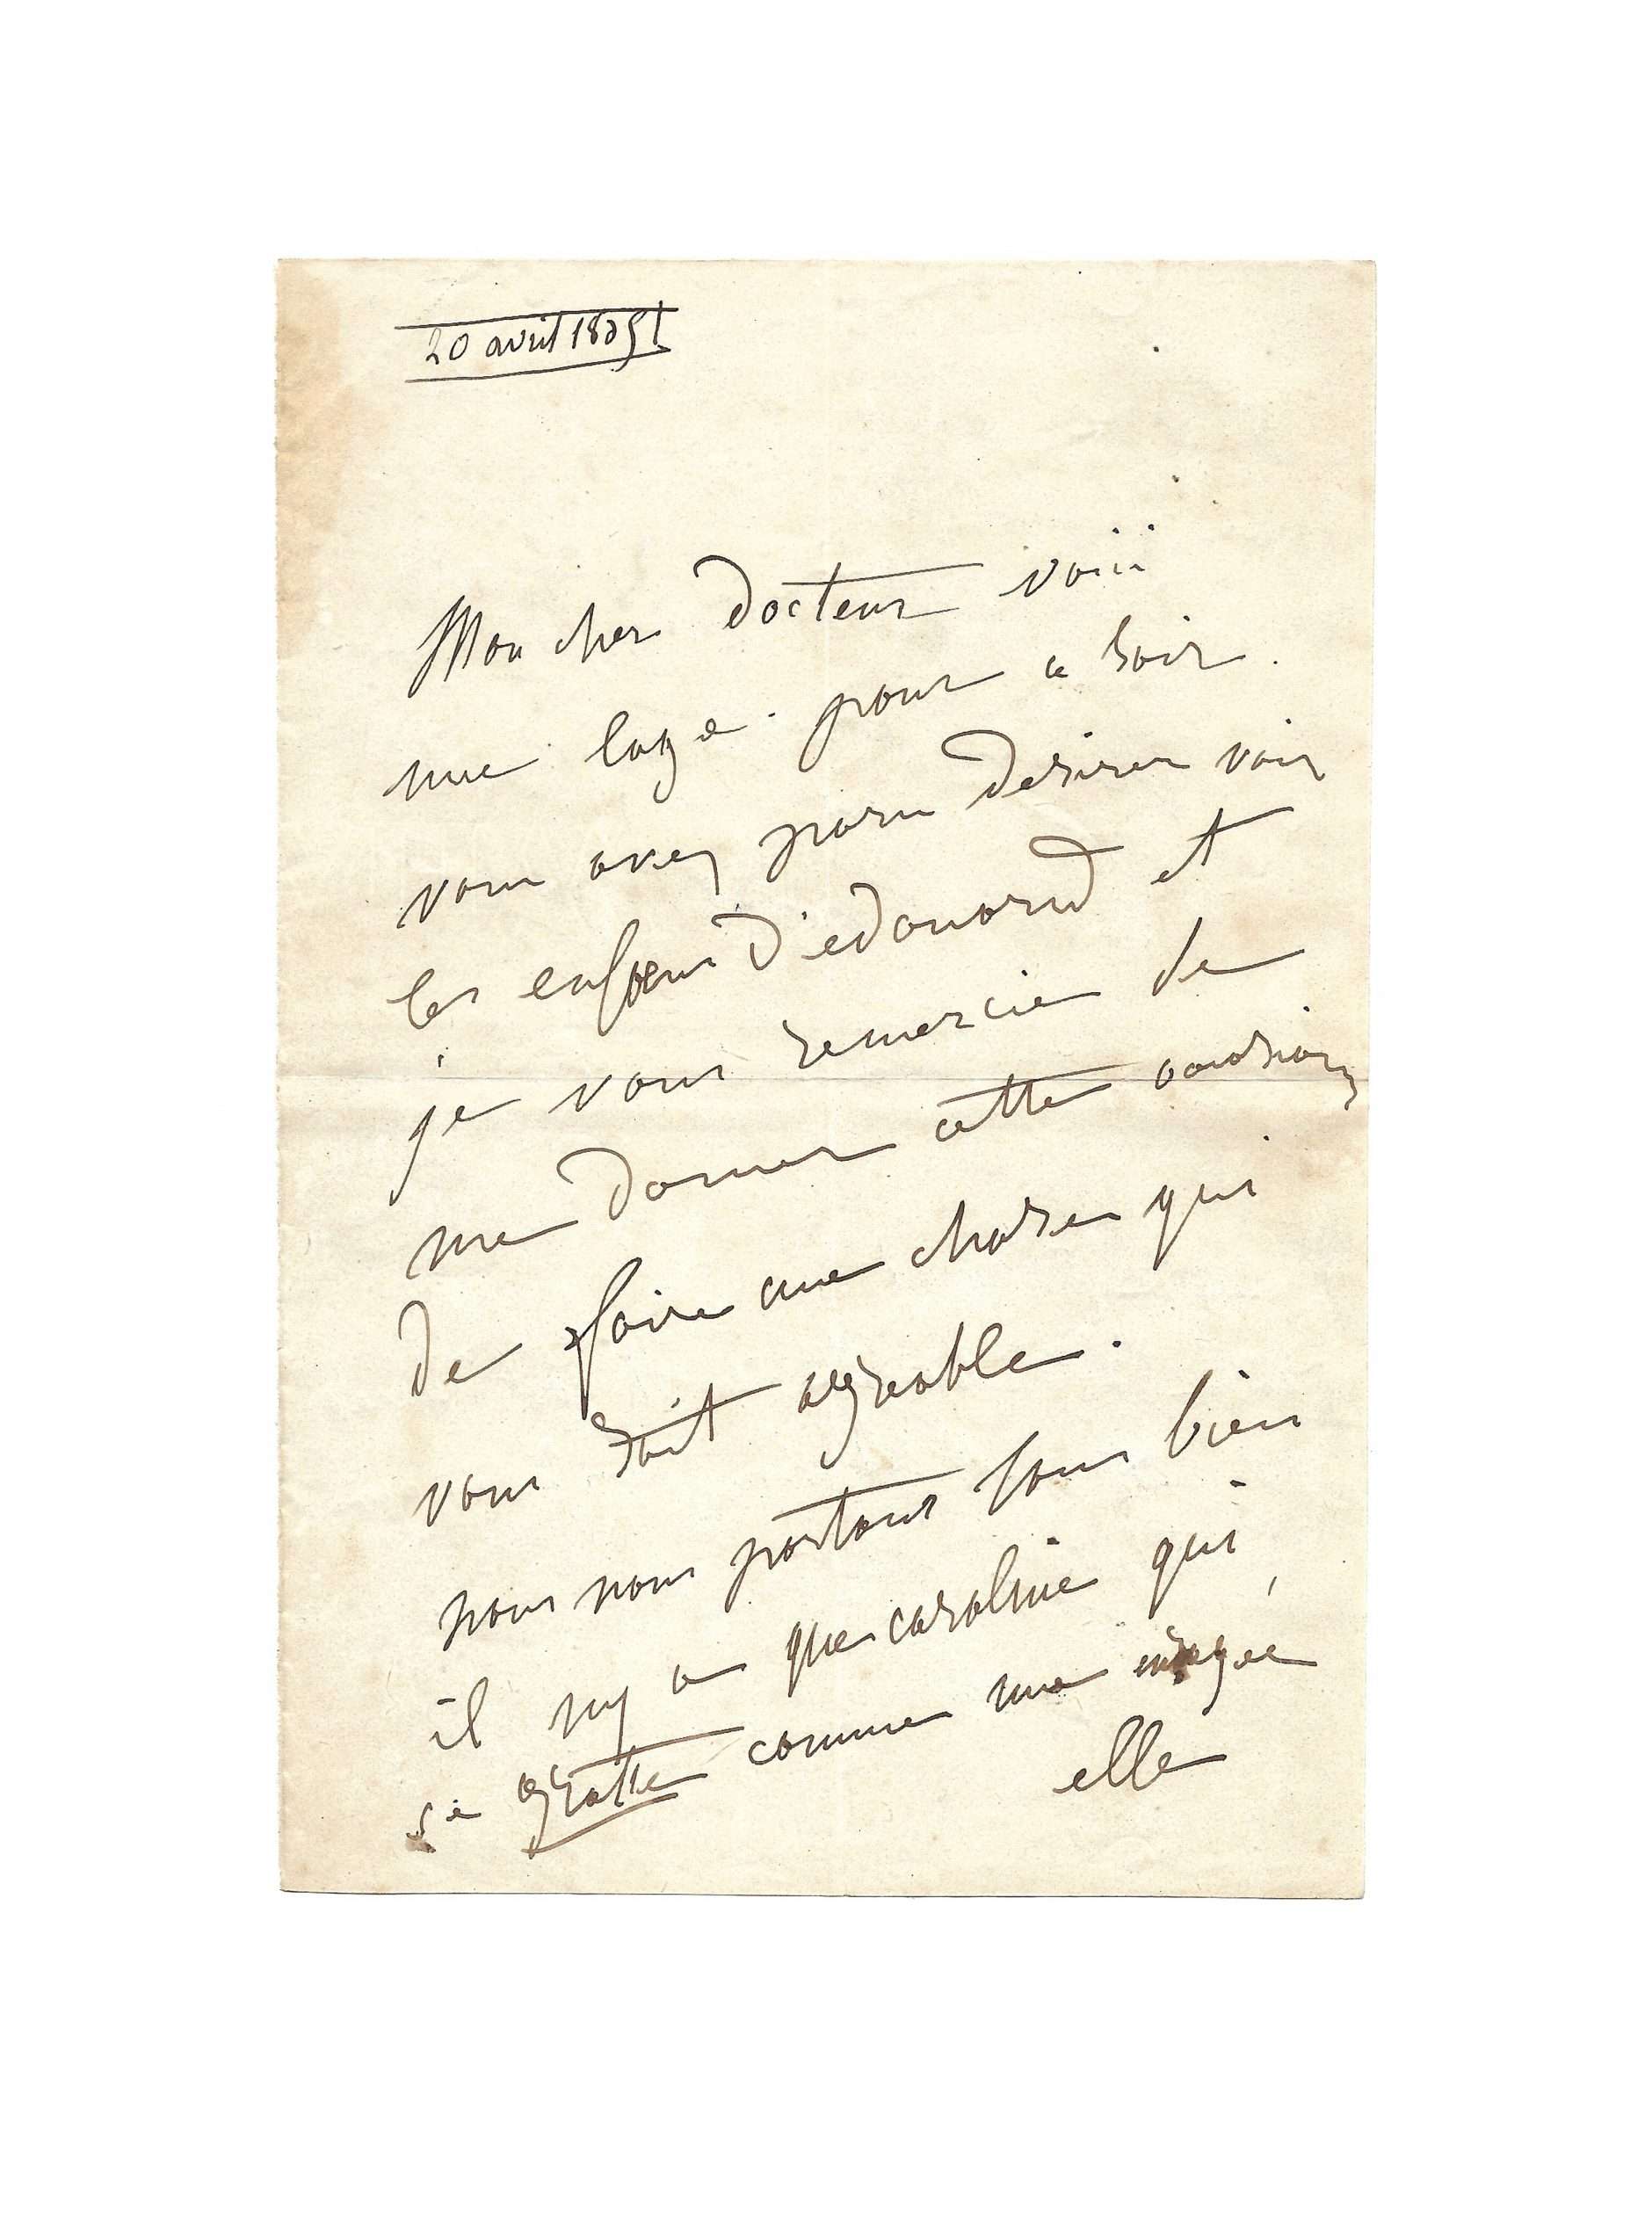 20 avril 1851
Mon cher docteur voici
une loge. pour ce soir.
vous avez paru desirer voir
les enfans d'edouard et
je vous remercie de
me donner cette occasion
de faire une chose qui
vous soit agréable.
nous nous portons tous bien
il ny a que caroline qui
se gratte comme une enragée
elle